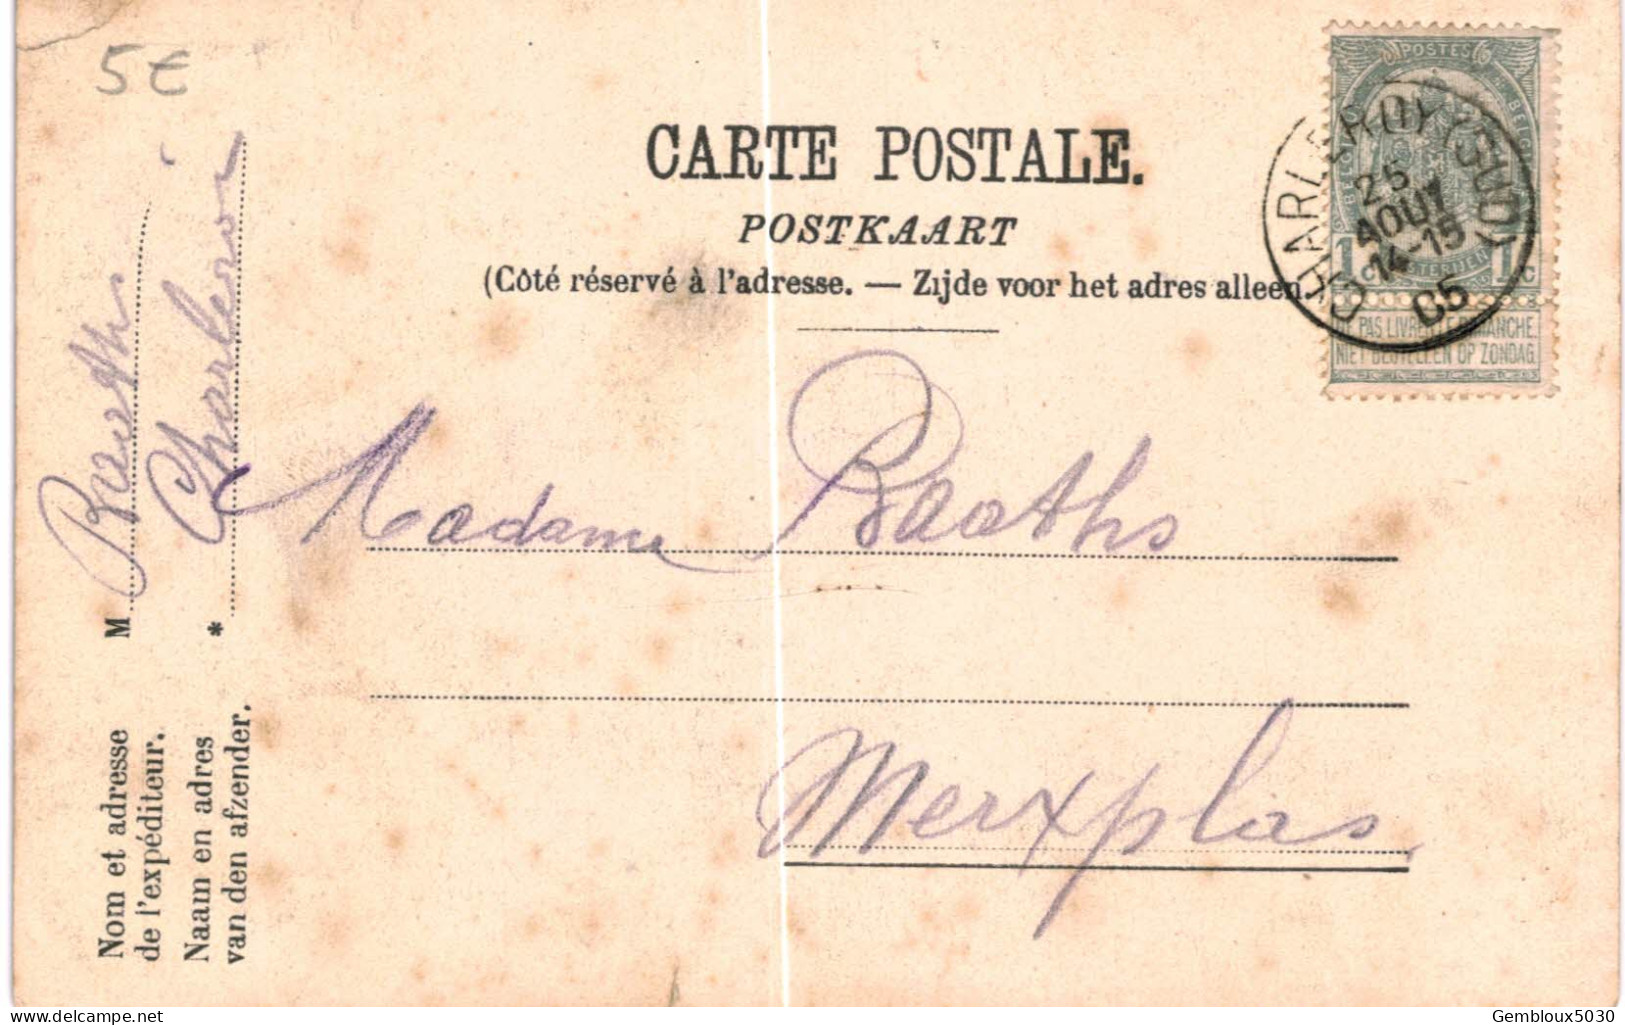 5€
CARTE POSTALE.
POSTKAART
(Côté réservé à l'adresse. — Zijde voor het adres alleen
POSTES
1 C 1 C
NE PAS LIVRER LE DIMANCHE.
NIET BESTELLEN OP ZONDAG.
CHARLEROY (SUD)
25
AOUT
14-15
05
Madame Baaths
Merxplas
M Baaths
* Charleroi
Nom et adresse
de l'expéditeur.
Naam en adres
van den afzender.
Gembloux5030